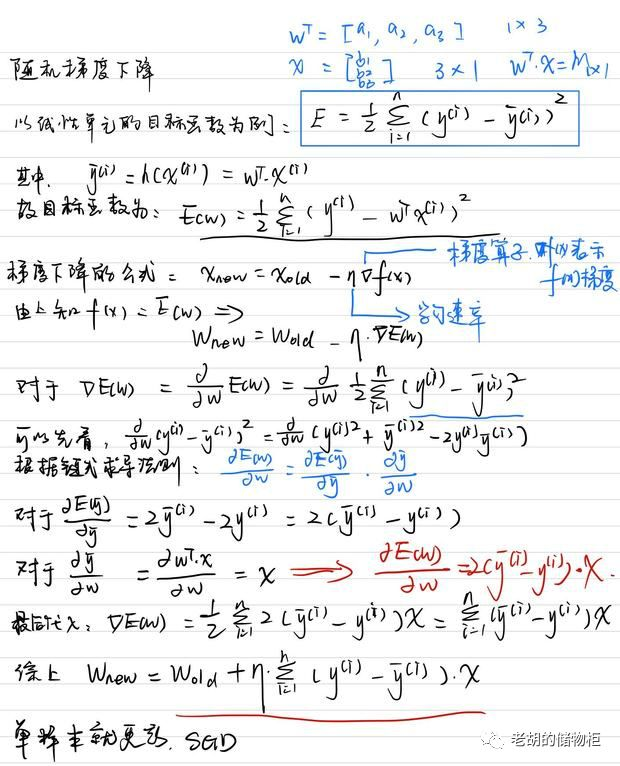 wᵀ = [a₁, a₂, a₃] 1×3
x = [b1 b2 b3] 3×1 wᵀ·x = M₁ₓ₁
随机梯度下降
以线性单元的目标函数为例: E = 1/2 Σ_{i=1}^{n} (y⁽ⁱ⁾ - ȳ⁽ⁱ⁾)²
其中, ȳ⁽ⁱ⁾ = h(x⁽ⁱ⁾) = wᵀ·x⁽ⁱ⁾
故目标函数为: E(w) = 1/2 Σ_{i=1}^{n} (y⁽ⁱ⁾ - wᵀx⁽ⁱ⁾)²
梯度下降的公式: x_new = x_old - η∇f(x)
梯度算子.
f的梯度
由上知 f(x) = E(w) ⟹
学习速率
w_new = w_old - η·∇E(w)
对于 ∇E(w) = ∂/∂w E(w) = ∂/∂w 1/2 Σ_{i=1}^{n} (y⁽ⁱ⁾ - ȳ⁽ⁱ⁾)²
可以先看, ∂/∂w (y⁽ⁱ⁾ - ȳ⁽ⁱ⁾)² = ∂/∂w (y⁽ⁱ⁾² + ȳ⁽ⁱ⁾² - 2y⁽ⁱ⁾ȳ⁽ⁱ⁾)
根据链式求导法则: ∂E(w)/∂w = ∂E(ȳ)/∂ȳ · ∂ȳ/∂w
对于 ∂E(ȳ)/∂ȳ = 2ȳ⁽ⁱ⁾ - 2y⁽ⁱ⁾ = 2(ȳ⁽ⁱ⁾ - y⁽ⁱ⁾)
对于 ∂ȳ/∂w = ∂wᵀ·x/∂w = x ⟹ ∂E(w)/∂w = 2(ȳ⁽ⁱ⁾ - y⁽ⁱ⁾)·x.
最后代入: ∇E(w) = 1/2 Σ_{i=1}^{n} 2(ȳ⁽ⁱ⁾ - y⁽ⁱ⁾)x = Σ_{i=1}^{n} (ȳ⁽ⁱ⁾ - y⁽ⁱ⁾)x
综上 w_new = w_old + η·Σ_{i=1}^{n} (y⁽ⁱ⁾ - ȳ⁽ⁱ⁾)·x
单样本就更新. SGD
老胡的储物柜